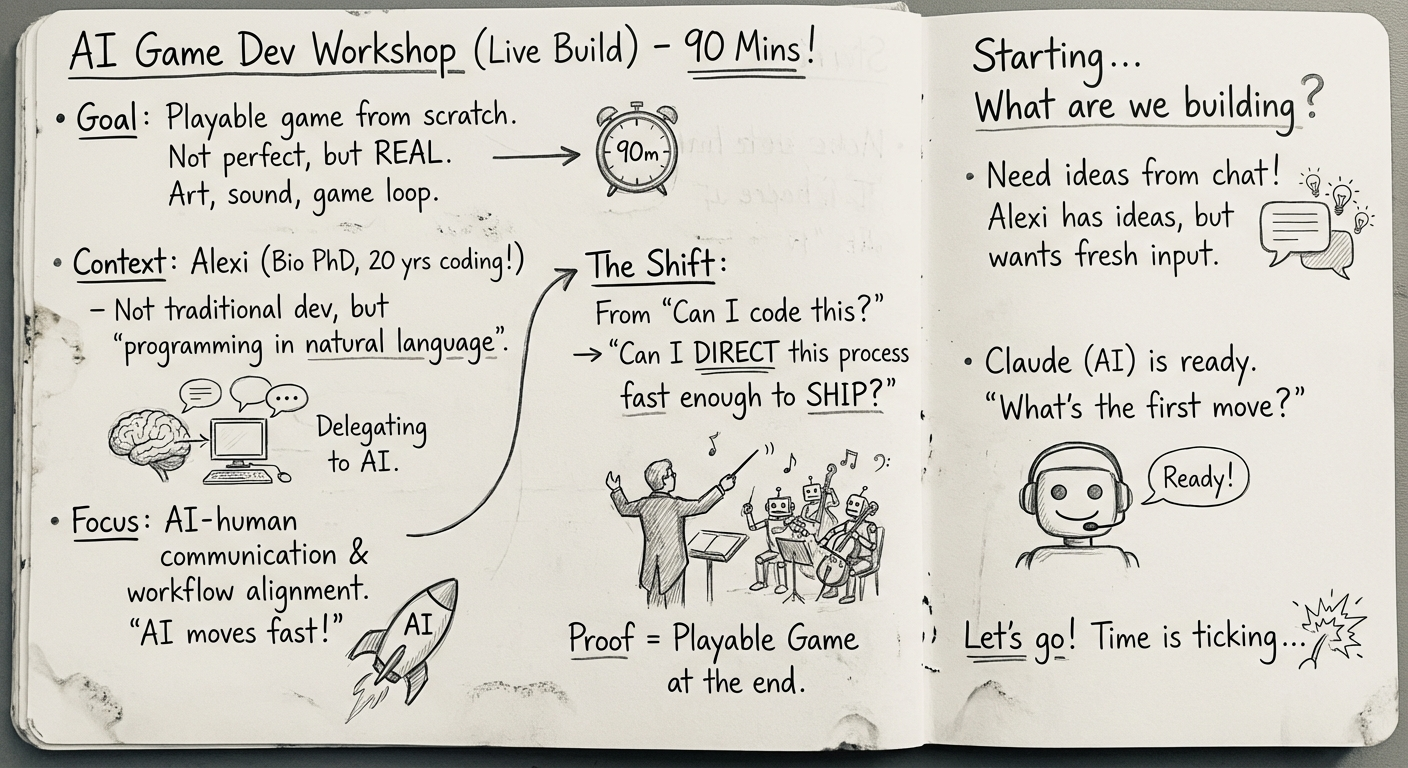 AI Game Dev Workshop (Live Build) – 90 Mins!
• Goal: Playable game from scratch.
Not perfect, but REAL.
Art, sound, game loop.
90m
• Context: Alexi (Bio PhD, 20 yrs coding!)
– Not traditional dev, but
“programming in natural language”.
Delegating
to AI.
• Focus: AI-human
communication &
workflow alignment.
“AI moves fast!”
AI
The Shift:
From “Can I code this?”
→ “Can I DIRECT this process
fast enough to SHIP?”
Proof = Playable Game
at the end.
Starting...
What are we building?
• Need ideas from chat!
Alexi has ideas, but
wants fresh input.
• Claude (AI) is ready.
“What's the first move?”
Ready!
Let's go! Time is ticking...